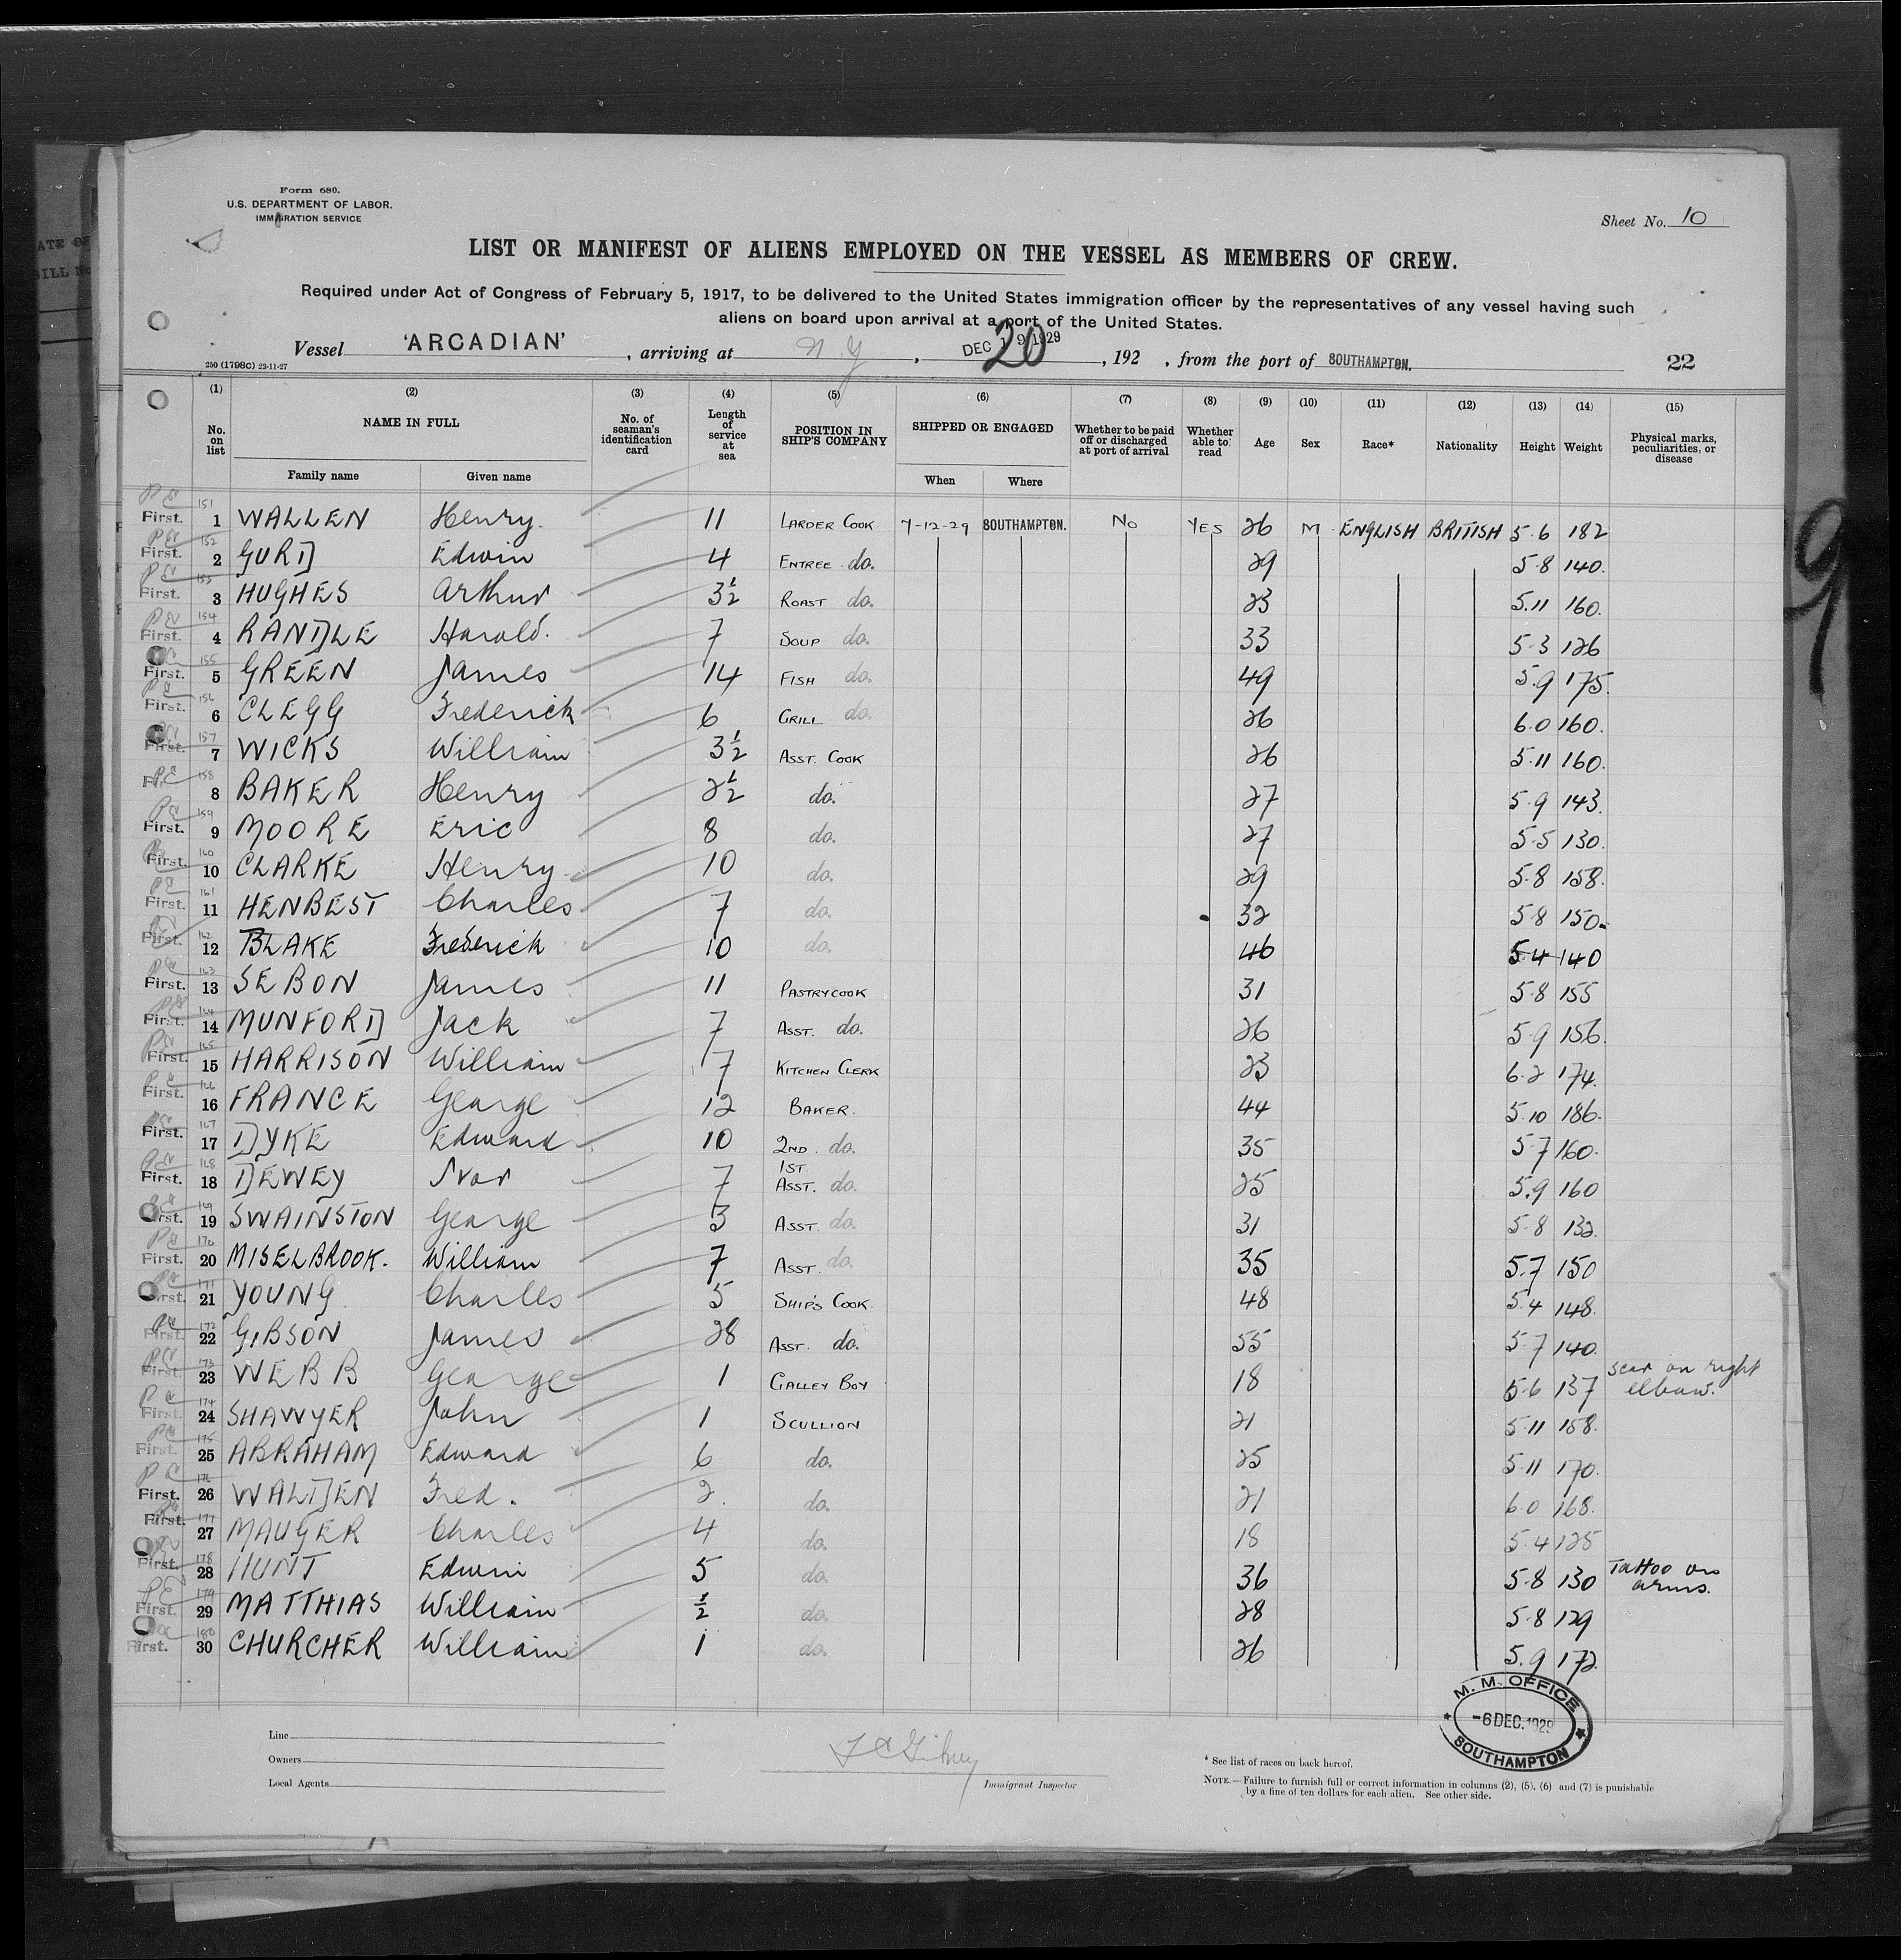 Form 680.
U.S. DEPARTMENT OF LABOR.
IMMIGRATION SERVICE
Sheet No. 10
LIST OR MANIFEST OF ALIENS EMPLOYED ON THE VESSEL AS MEMBERS OF CREW.
Required under Act of Congress of February 5, 1917, to be delivered to the United States immigration officer by the representatives of any vessel having such
aliens on board upon arrival at a port of the United States.
Vessel 'ARCADIAN', arriving at N Y, DEC 19 1929 20, 192 , from the port of SOUTHAMPTON. 22
250 (1798C) 23-11-27
(1) (2) (3) (4) (5) (6) (7) (8) (9) (10) (11) (12) (13) (14) (15)
No. on list NAME IN FULL Family name Given name No. of seaman's identification card Length of service at sea POSITION IN SHIP'S COMPANY SHIPPED OR ENGAGED When Where Whether to be paid off or discharged at port of arrival Whether able to read Age Sex Race* Nationality Height Weight Physical marks, peculiarities, or disease
First. 151 1 WALLEN Henry. 11 LARDER COOK 7-12-29 SOUTHAMPTON. No YES 26 M ENGLISH BRITISH 5.6 182
First. 152 2 GURD Edwin 4 ENTREE do. 29 5.8 140.
First. 153 3 HUGHES Arthur 3½ ROAST do. 23 5.11 160.
First. 154 4 RANDLE Harold. 7 SOUP do. 33 5.3 126
First. 155 5 GREEN James 14 FISH do. 49 5.9 175.
First. 156 6 CLEGG Frederick 6 GRILL do. 26 6.0 160.
First. 157 7 WICKS William 3½ ASST. COOK 26 5.11 160.
158 8 BAKER Henry 2½ do. 27 5.9 143.
First. 159 9 MOORE Eric 8 do. 27 5.5 130.
First. 160 10 CLARKE Henry 10 do. 29 5.8 158.
First. 161 11 HENBEST Charles 7 do. 32 5.8 150.
First. 162 12 BLAKE Frederick 10 do. 46 5.4 140
First. 163 13 SEBON James 11 PASTRYCOOK 31 5.8 155
First. 164 14 MUNFORD Jack 7 ASST. do. 26 5.9 156.
First. 165 15 HARRISON William 7 KITCHEN CLERK 23 6.2 174.
First. 166 16 FRANCE George 12 BAKER. 44 5.10 186.
First. 167 17 DYKE Edward 10 2ND. do. 35 5.7 160.
First. 168 18 DEWEY Ivor 7 1ST ASST. do. 25 5.9 160
First. 169 19 SWAINSTON George 3 ASST. do. 31 5.8 132.
First. 170 20 MISELBROOK. William 7 ASST. do. 35 5.7 150
First. 171 21 YOUNG Charles 5 SHIP'S COOK. 48 5.4 148.
First. 172 22 GIBSON James 28 ASST. do. 55 5.7 140.
First. 173 23 WEBB George 1 GALLEY BOY 18 5.6 137 scar on right elbow.
First. 174 24 SHAWYER John 1 SCULLION 21 5.11 158.
First. 175 25 ABRAHAM Edward 6 do. 25 5.11 170.
First. 176 26 WALDEN Fred. 2. do. 21 6.0 168.
First. 177 27 MAUGER Charles 4 do. 18 5.4 125
First. 178 28 HUNT Edwin 5 do. 36 5.8 130 Tattoo on arms.
First. 179 29 MATTHIAS William ½ do. 28 5.8 129
First. 180 30 CHURCHER William 1 do. 26 5.9 172.
M. M. OFFICE
-6 DEC. 1929
SOUTHAMPTON
Line
Owners
Local Agents
Immigrant Inspector
* See list of races on back hereof.
NOTE.—Failure to furnish full or correct information in columns (2), (5), (6) and (7) is punishable
by a fine of ten dollars for each alien. See other side.
9